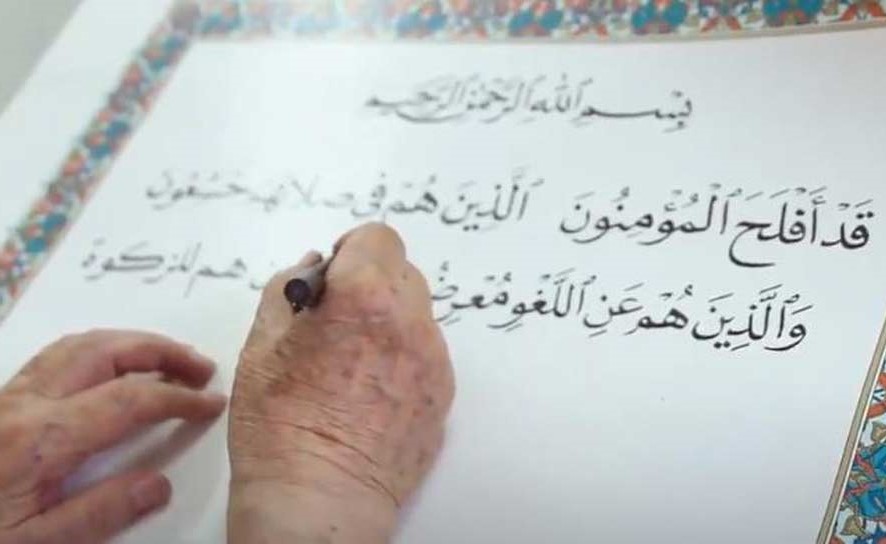 بِسْمِ ٱللَّهِ ٱلرَّحْمَٰنِ ٱلرَّحِيمِ
قَدْ أَفْلَحَ ٱلْمُؤْمِنُونَ ٱلَّذِينَ هُمْ فِى صلاتهم خشعون
وَٱلَّذِينَ هُمْ عَنِ ٱللَّغْوِ مُعْرِضُ هم للزكوة